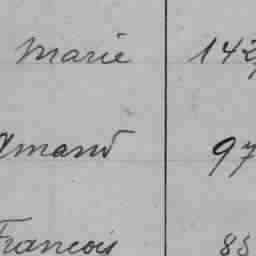 Marie 142
Amand 97
Francois 85